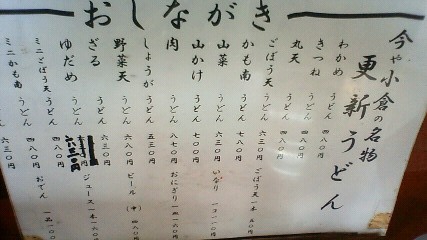 おしながき
今や小倉の名物
更新うどん
わかめ うどん 四八〇円
きつね うどん 四八〇円
丸天 うどん 四八〇円
ごぼう天 うどん 六三〇円
かも南 うどん 七八〇円
山菜 うどん 六三〇円
山かけ うどん 七八〇円
肉 うどん 八七〇円
しょうが うどん 五三〇円
野菜天 うどん 六八〇円
ざる うどん 六三〇円
ゆだめ うどん
ミニごぼう天 うどん 四八〇円
ミニかも南 うどん 六三〇円
ごぼう天一本 五〇円
いなり
おにぎり
ビール (中)
ジュース一本
おでん